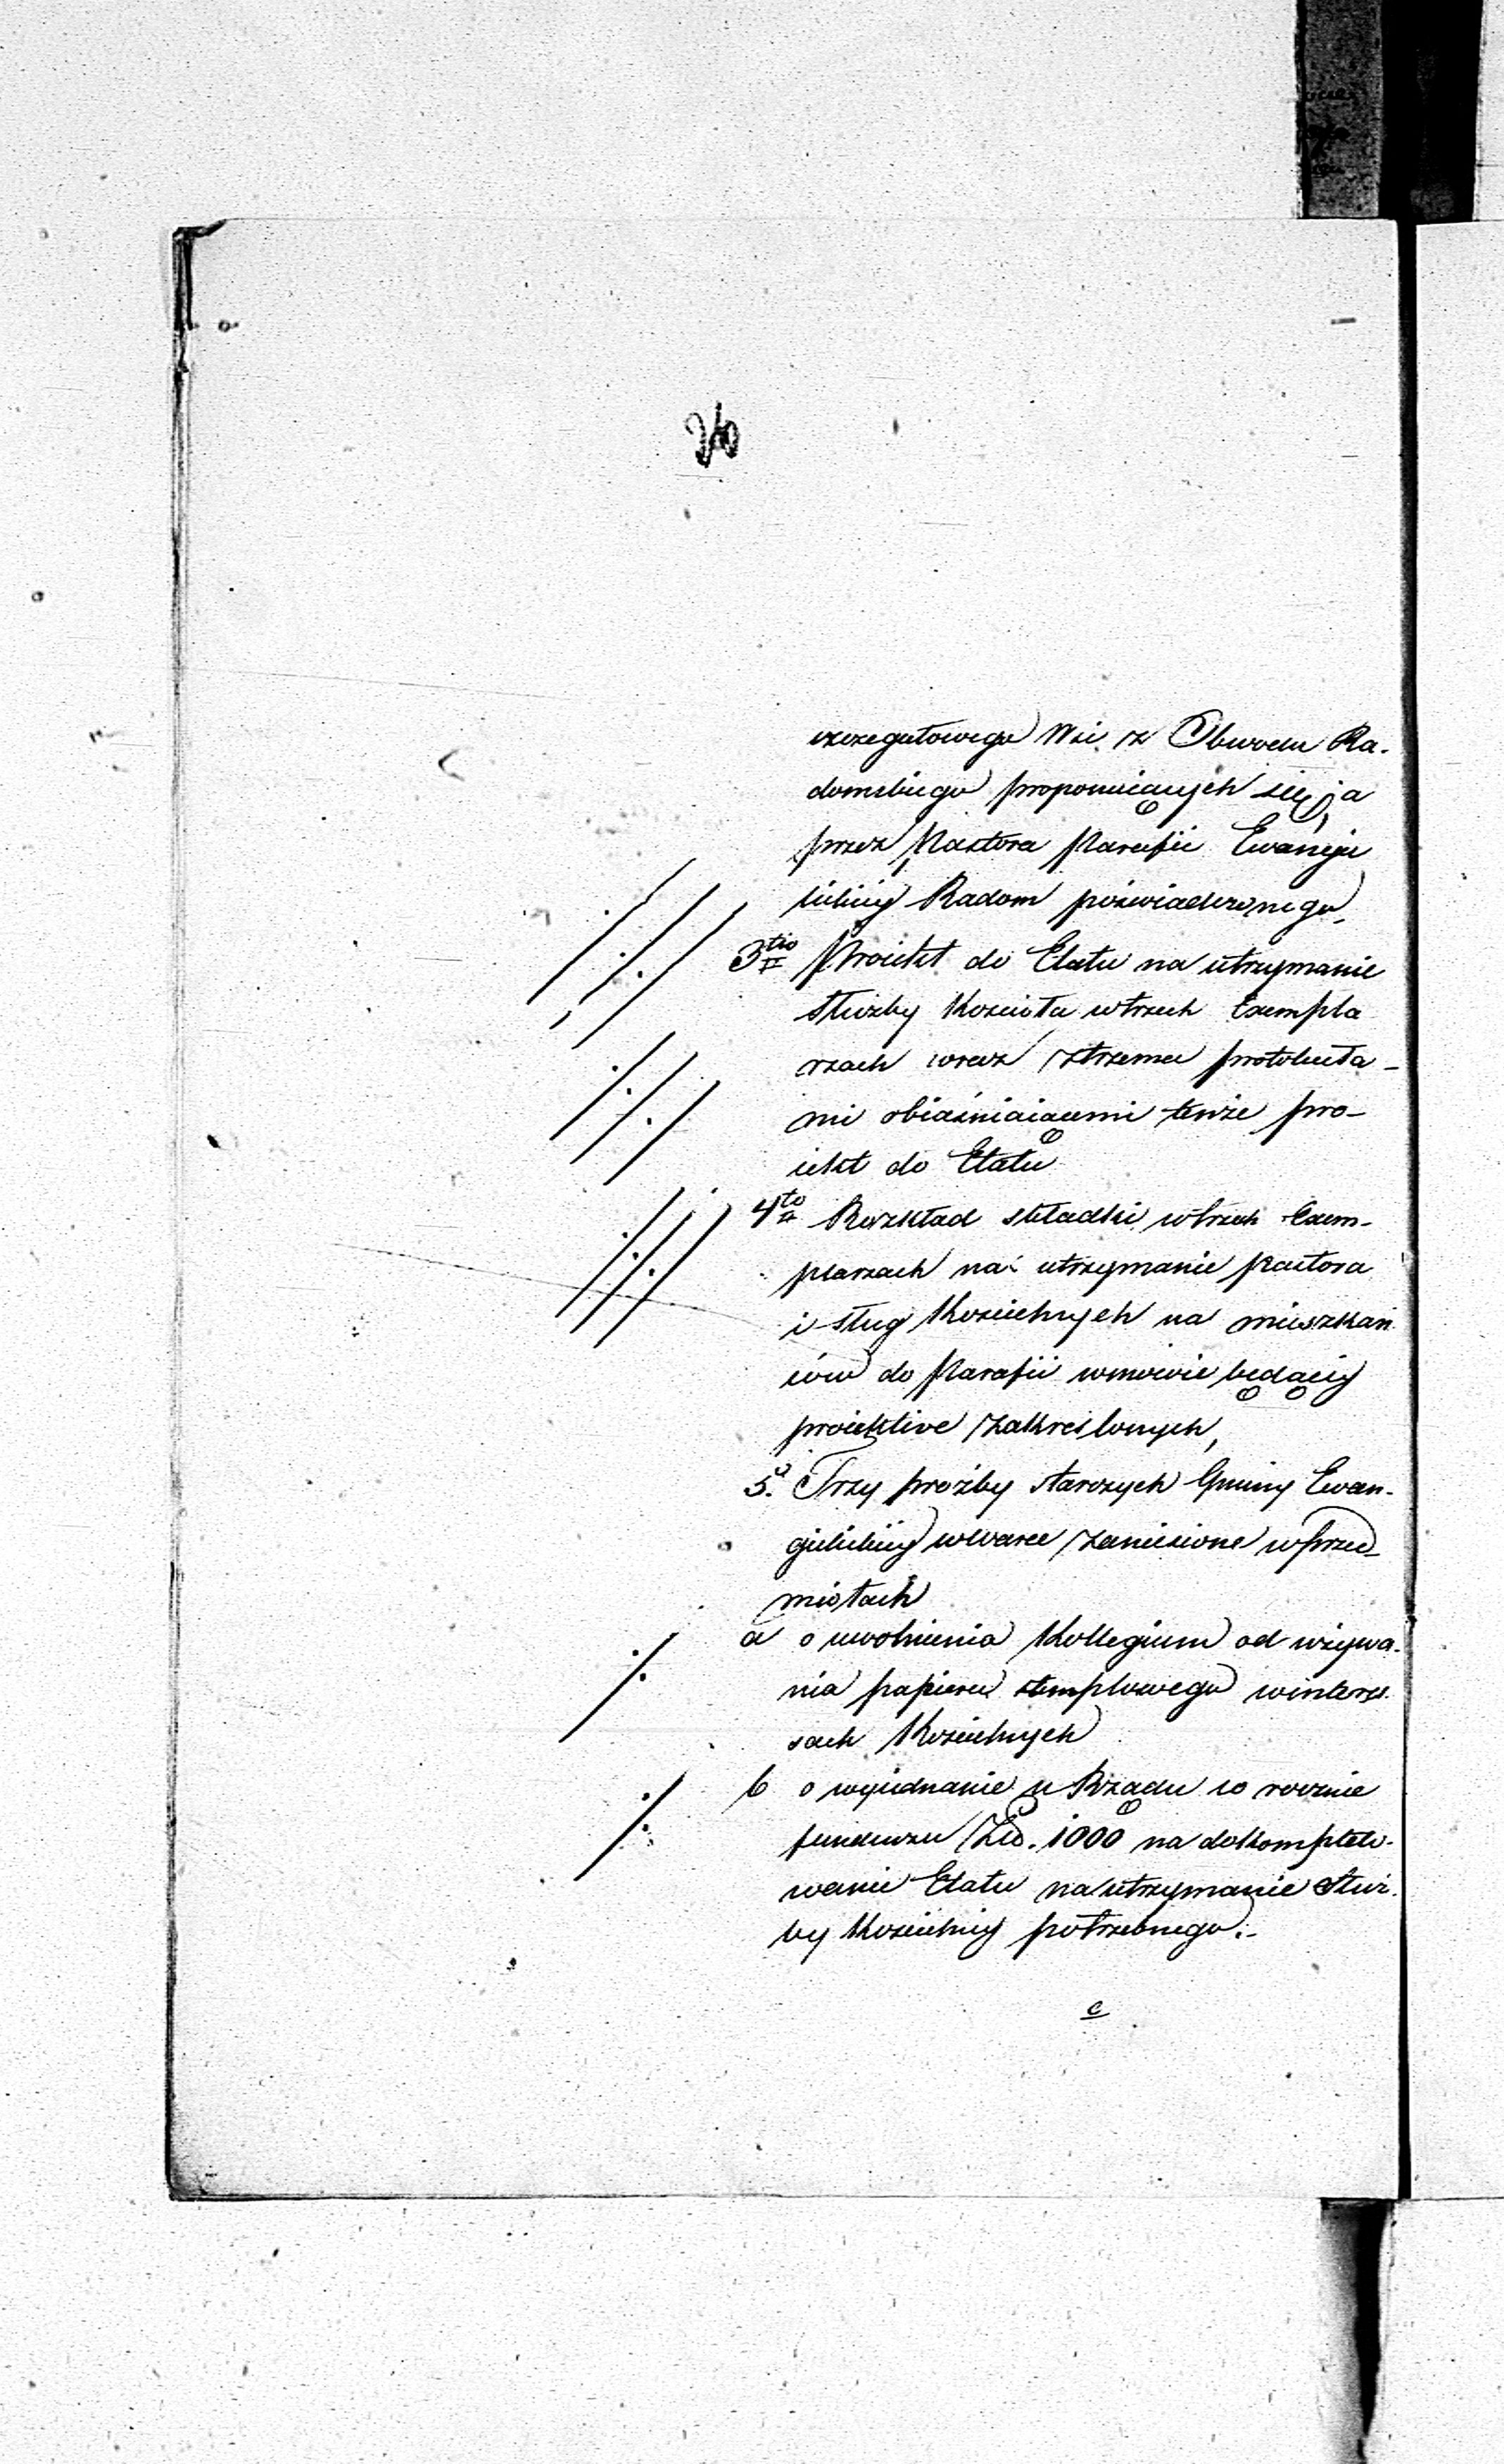 26
szczegułowego Wsi z Obwodu Ra-
domskiego proponuiących się, a
przez Pastora Parafii Ewangie
lickiey Radom poświadczonego,
3tio Proiekt do Etatu na utrzymanie
służby Kościoła wtrzech Exempla
rzach wraz ztrzema protokuła-
mi obiaśniaiącemi tenże pro-
iekt do Etatu
4to Rozkład składki wtrzech Exem-
plarzach na utrzymanie Pastora
i sług Kościelnych na mieszkań
ców do Parafii wmowie będącéy
proiektive zakreślonych,
5o. Trzy prożby starszych Gminy Ewan-
gielickiey wWarce zaniesione wprzed-
miotach
a o uwolnienia Kollegium od używa-
nia papieru stemplowego winteres-
sach Kościelnych
b o wyiednanie u Rządu co rocznie
funduszu Złp. 1000 na dokompleto-
wanie Etatu na utrzymanie służ-
by Kościelney potrzebnego.-
c